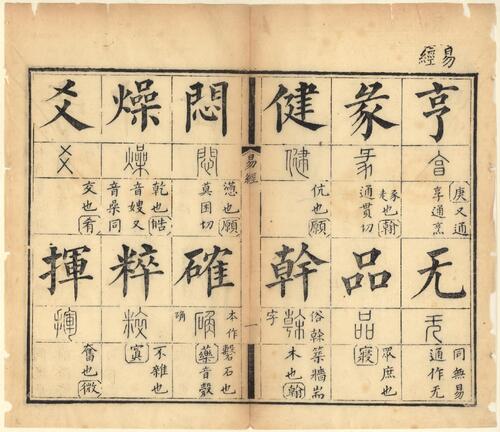 易經
亨
亨
庚又通
享通烹
无
无
同無易
通作无
彖
彖
豕走也翰
通貫切
品
品
眾庶也寢
健
健
伉也願
幹
榦
俗榦築牆耑
木也翰
字
易經
一
悶
悶
懣也願
莫困切
確
确
本作
石也
藥音殼
燥
燥
乾也皓
音嫂又
音喿同
粹
粹
不雜也
寘
爻
爻
交也肴
揮
揮
奮也微